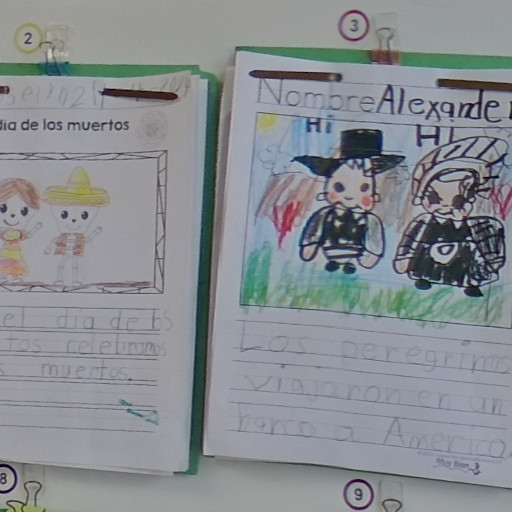 2
3
día de los muertos
el día de los
tos celebramos
s muertos.
Nombre Alexander
Hi Hi
Los peregrinos
viajaron en un
barco a America
8
9